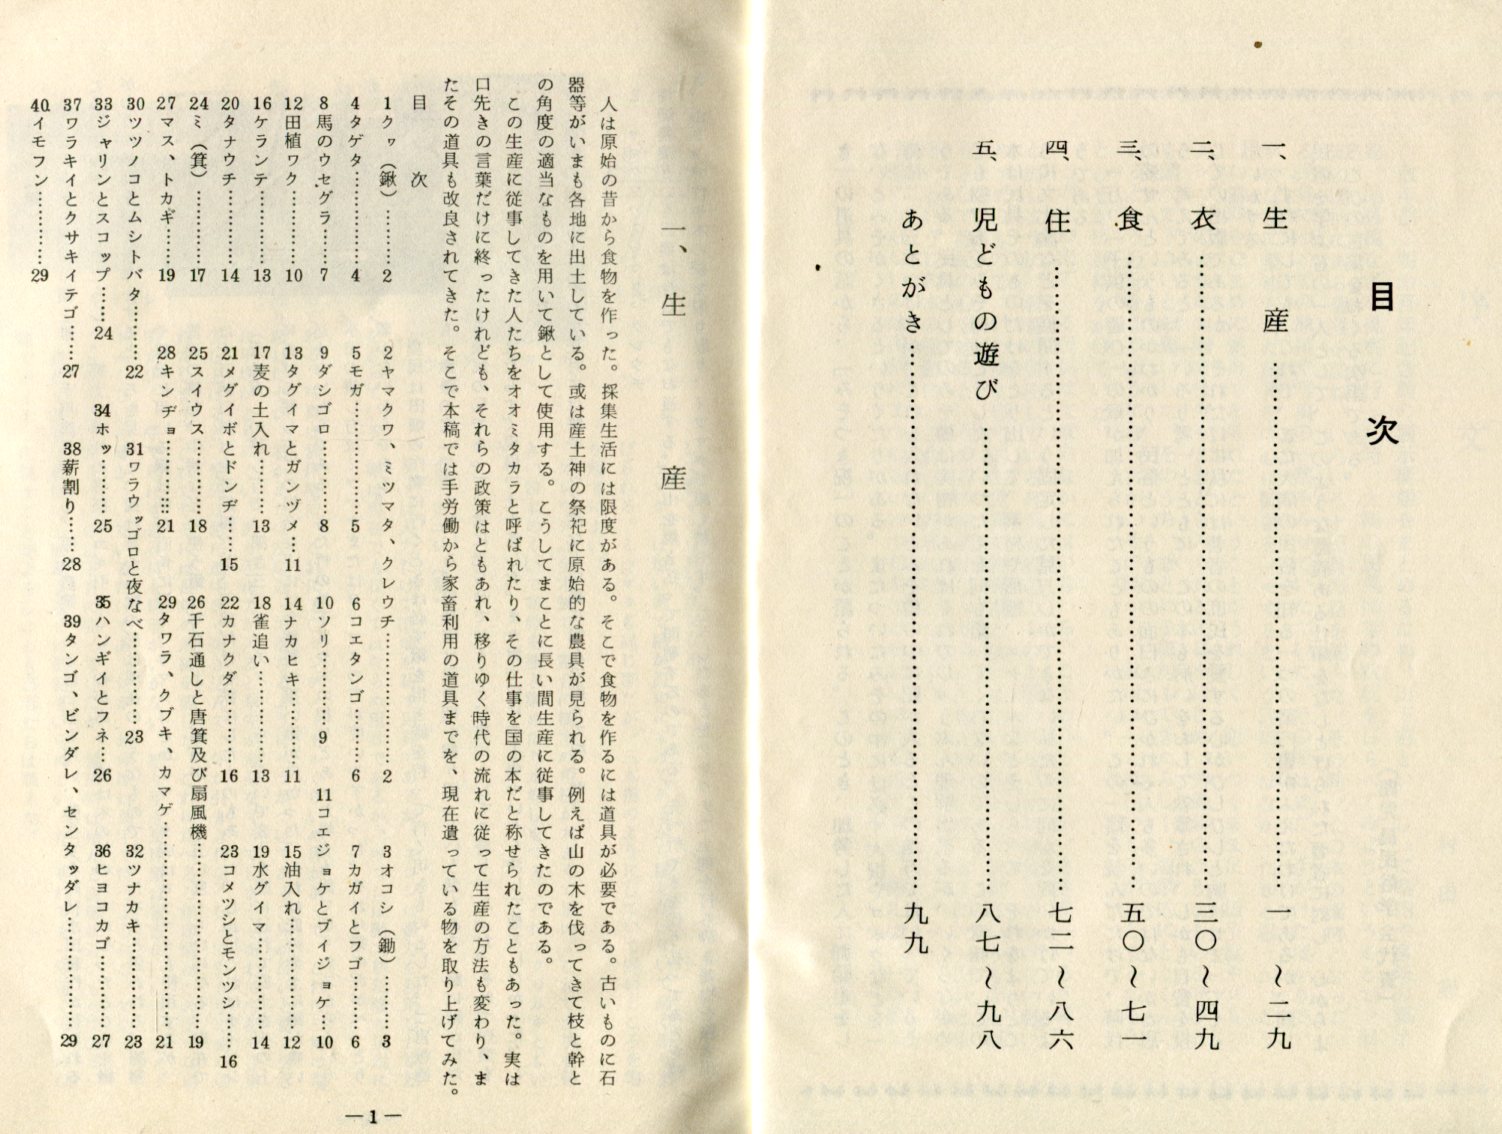 目次
一、生産……………一～二九
二、衣……………三〇～四九
三、食……………五〇～七一
四、住……………七二～八六
五、児どもの遊び……………八七～九八
あとがき……………九九
一、生産
人は原始の昔から食物を作った。採集生活には限度がある。そこで食物を作るには道具が必要である。古いものに石
器等がいまも各地に出土している。或は産土神の祭祀に原始的な農具が見られる。例えば山の木を伐ってきて枝と幹と
の角度の適当なものを用いて鍬として使用する。こうしてまことに長い間生産に従事してきたのである。
この生産に従事してきた人たちをオオミタカラと呼ばれたり、その仕事を国の本だと称せられたこともあった。実は
口先きの言葉だけに終ったけれども、それらの政策はともあれ、移りゆく時代の流れに従って生産の方法も変わり、ま
たその道具も改良されてきた。そこで本稿では手労働から家畜利用の道具までを、現在遺っている物を取り上げてみた。
目次
1クヮ（鍬）………2　2ヤマクワ、ミツマタ、クレウチ………2　3オコシ（鋤）………3
4タゲタ………4　5モガ………5　6コエタンゴ………6　7カガイとフゴ………6
8馬のウセグラ………7　9ダシゴロ………8　10ソリ………9　11コエジョケとブイジョケ…10
12田植ワク………10　13タグイマとガンヅメ…11　14ナカヒキ………11　15油入れ………12
16ケランテ………13　17麦の土入れ………13　18雀追い………13　19水グイマ………14
20タナウチ………14　21メグイボとドンヂ……15　22カナクダ………16　23コメツシとモンツシ……16
24ミ（箕）………17　25スイウス………18　26千石通しと唐箕及び扇風機………19
27マス、トカギ……19　28キンヂョ………21　29タワラ、クブキ、カマゲ………21
30ツツノコとムシトバタ……22　31ワラウッゴロと夜なべ………23　32ツナカキ………23
33ジャリンとスコップ……24　34ホッ………25　35ハンギイとフネ…26　36ヒヨコカゴ………27
37ワラキイとクサキイテゴ……27　38薪割り……28　39タンゴ、ビンダレ、センタッダレ………29
40イモフン………29
—1—